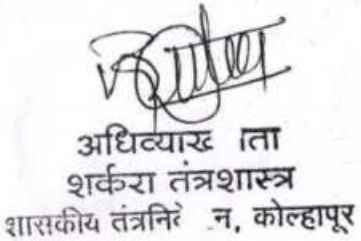 अधिव्याख ाता
शर्करा तंत्रशास्त्र
शासकीय तंत्रनिके न, कोल्हापूर